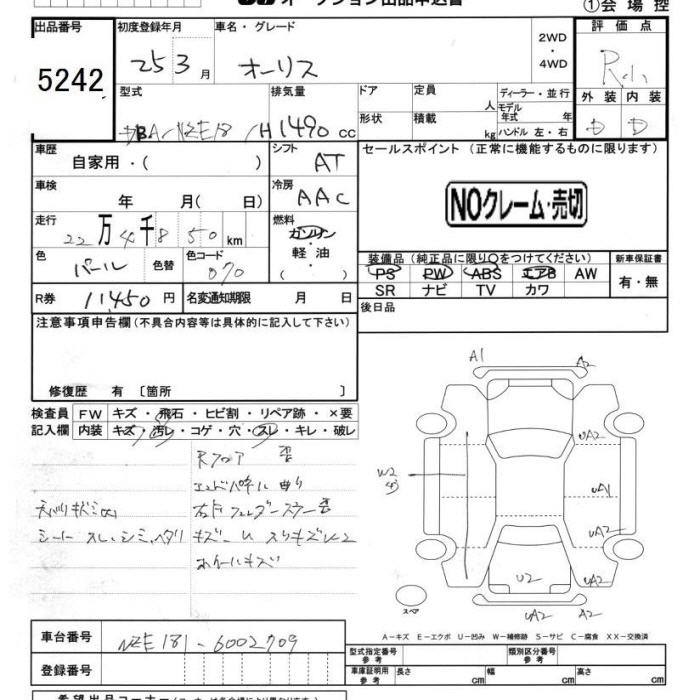 オークション出品申込書
①会場控
出品番号
5242
初度登録年月
25 3月
車名・グレード
オーリス
2WD
・
4WD
評価点
R
外装 内装
D D
型式
DBA-NZE181H
排気量
1490 cc
ドア
定員
人
ディーラー・並行
モデル年式 年
形状
積載
kg
ハンドル 左・右
車歴
自家用・( )
シフト
AT
セールスポイント(正常に機能するものに限ります)
NOクレーム・売切
車検
年 月( 日)
冷房
AAC
走行
22万4千850km
燃料
ガソリン
・
軽油
・
( )
色
パール
色替
色コード
070
装備品(純正品に限り○をつけてください)
PS PW ABS エアB AW
SR ナビ TV カワ
新車保証書
有・無
R券
11450円
名変通知期限
月 日
後日品
注意事項申告欄(不具合内容等は具体的に記入して下さい)
修復歴 有〔箇所 〕
検査員
記入欄
FW キズ・飛石・ヒビ割・リペア跡・×要
内装 キズ・汚レ・コゲ・穴・スレ・キレ・破レ
Rフロア 歪
エンドパネル 曲り
シート スレ、シミ、ヘタリ
ホイールキズ
A1
A2
UA2
W2
UA1
UA2
U2
UA2
スペア
UA2
A2
A−キズ E−エクボ U−凹み W−補修跡 S−サビ C−腐食 XX−交換済
車台番号
NZE181-6002709
登録番号
型式指定番号
参考
類別区分番号
参考
車庫証明用
参考
長さ cm
幅 cm
高さ cm